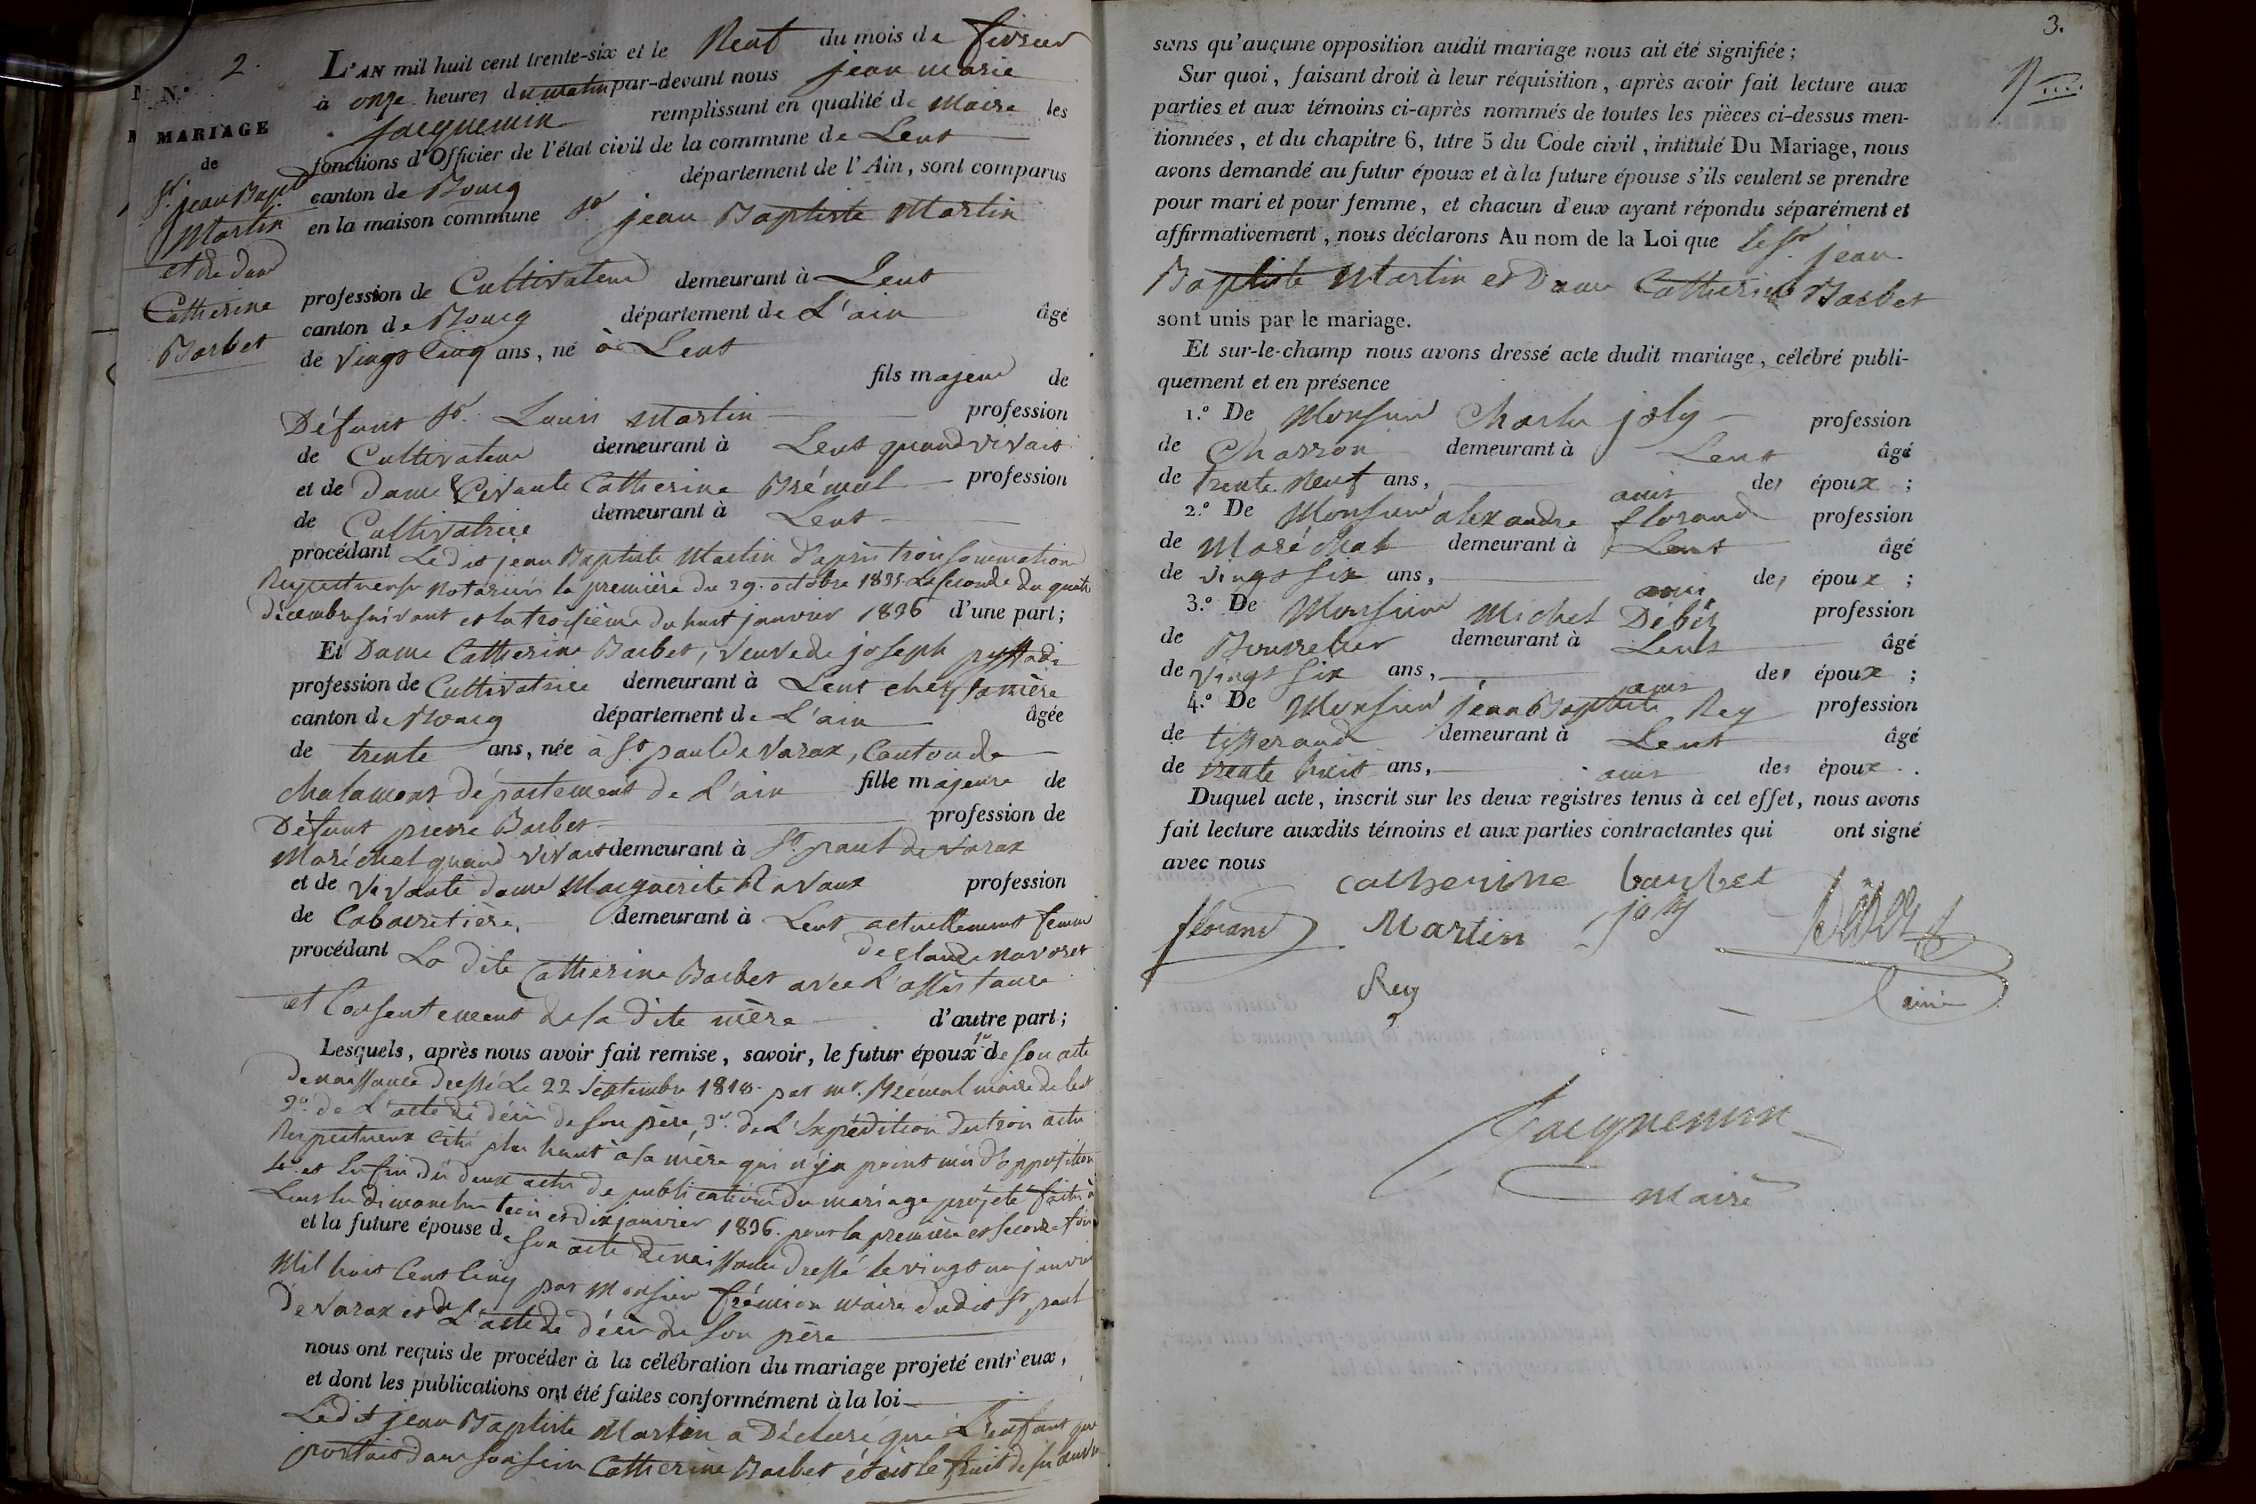 2.
N.°
MARIAGE
de
Sr. jean Bapt.
Martin
et de dame
Catherine
Barbet
L'AN mil huit cent trente-six et le Neuf du mois de février
à onze heures du matin par-devant nous jean marie
Jacquemin remplissant en qualité de Maire les
fonctions d'Officier de l'état civil de la commune de Lent
canton de Bourg département de l'Ain, sont comparus
en la maison commune Sr jean Baptiste Martin
profession de Cultivateur demeurant à Lent
canton de Bourg département de L'ain âgé
de vingt Cinq ans, né à Lent
fils majeur de
Défunt Sr. Louis Martin profession
de Cultivateur demeurant à Lent quand vivait
et de dame Vivante Catherine Brémal profession
de Cultivatrice demeurant à Lent
procédant Ledit jean Baptiste Martin d'après trois sommations
Respectueuses notariées la première du 29. octobre 1835. La seconde du quatre
décembre suivant et la troisième du huit janvier 1836 d'une part;
Et Dame Catherine Barbet, veuve de joseph
profession de Cultivatrice demeurant à Lent chez sa mère
canton de Bourg département de L'ain âgée
de trente ans, née à St. paul de Varax, Canton de
Chalamont département de L'ain fille majeure de
Défunt pierre Barbet profession de
Maréchal quand vivait demeurant à St. paul de Varax
et de vivante dame Marguerite Ravaux profession
de Cabaretière, demeurant à Lent actuellement femme
de claude navoret
procédant La dite Catherine Barbet avec L'assistance
et Consentement de sa dite mère d'autre part;
Lesquels, après nous avoir fait remise, savoir, le futur époux 1° de son acte
de naissance dressé Le 22 Septembre 1810. par mr. Brémal maire de lent
2° de L'acte de décès de son père, 3° de L'Expédition des trois actes
Respectueux cités plus haut à sa mère qui n'y a point mis d'opposition
4° et Enfin des deux actes de publications du mariage projeté faites à
Lent les dimanches trois et dix janvier 1836. pour la première et seconde fois
et la future épouse de son acte de naissance dressé le vingt un janvier
Mil huit Cent Cinq par Monsieur frémion maire dudit St. paul
de Varax et de L'acte de décès de son père
nous ont requis de procéder à la célébration du mariage projeté entr'eux,
et dont les publications ont été faites conformément à la loi
Ledit jean Baptiste Martin a Déclaré que L'enfant que
portait dans son sein Catherine Barbet était le fruit de
3.
sans qu'aucune opposition audit mariage nous ait été signifiée;
Sur quoi, faisant droit à leur réquisition, après avoir fait lecture aux
parties et aux témoins ci-après nommés de toutes les pièces ci-dessus men-
tionnées, et du chapitre 6, titre 5 du Code civil, intitulé Du Mariage, nous
avons demandé au futur époux et à la future épouse s'ils veulent se prendre
pour mari et pour femme, et chacun d'eux ayant répondu séparément et
affirmativement, nous déclarons Au nom de la Loi que Le Sr. jean
Baptiste Martin et Dame Catherine Barbet
sont unis par le mariage.
Et sur-le-champ nous avons dressé acte dudit mariage, célébré publi-
quement et en présence
1.° De Monsieur Charles joly profession
de Charron demeurant à Lent âgé
de trente neuf ans, amis des époux;
2.° De Monsieur alexandre florand profession
de Maréchal demeurant à Lent âgé
de vingt six ans, ami des époux;
3.° De Monsieur Michel Débёs profession
de Bourrelier demeurant à Lent âgé
de vingt six ans, amis des époux;
4.° De Monsieur jean Baptiste Rey profession
de tisserand demeurant à Lent âgé
de trente huit ans, amis des époux.
Duquel acte, inscrit sur les deux registres tenus à cet effet, nous avons
fait lecture auxdits témoins et aux parties contractantes qui ont signé
avec nous
catherine barbet
florand Martin joly
Rey
ainé
Jacquemin
maire